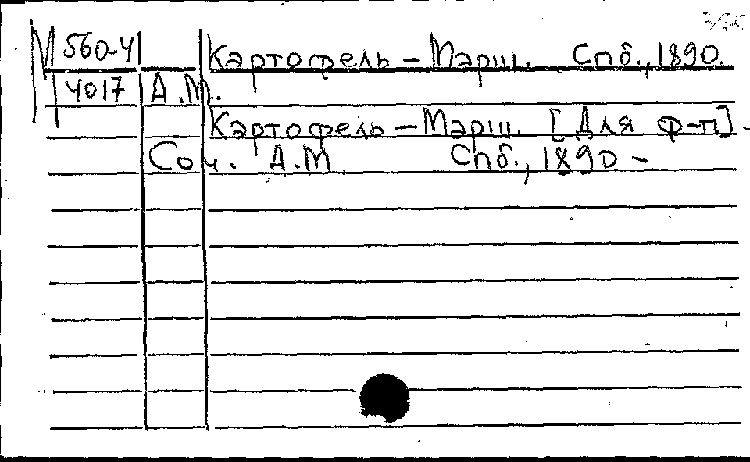 М 560-4 Картофель – Марш. Спб., 1890.
4017 А.М.
Картофель – Марш. [Для ф-п].
Соч. А.М Спб., 1890 –